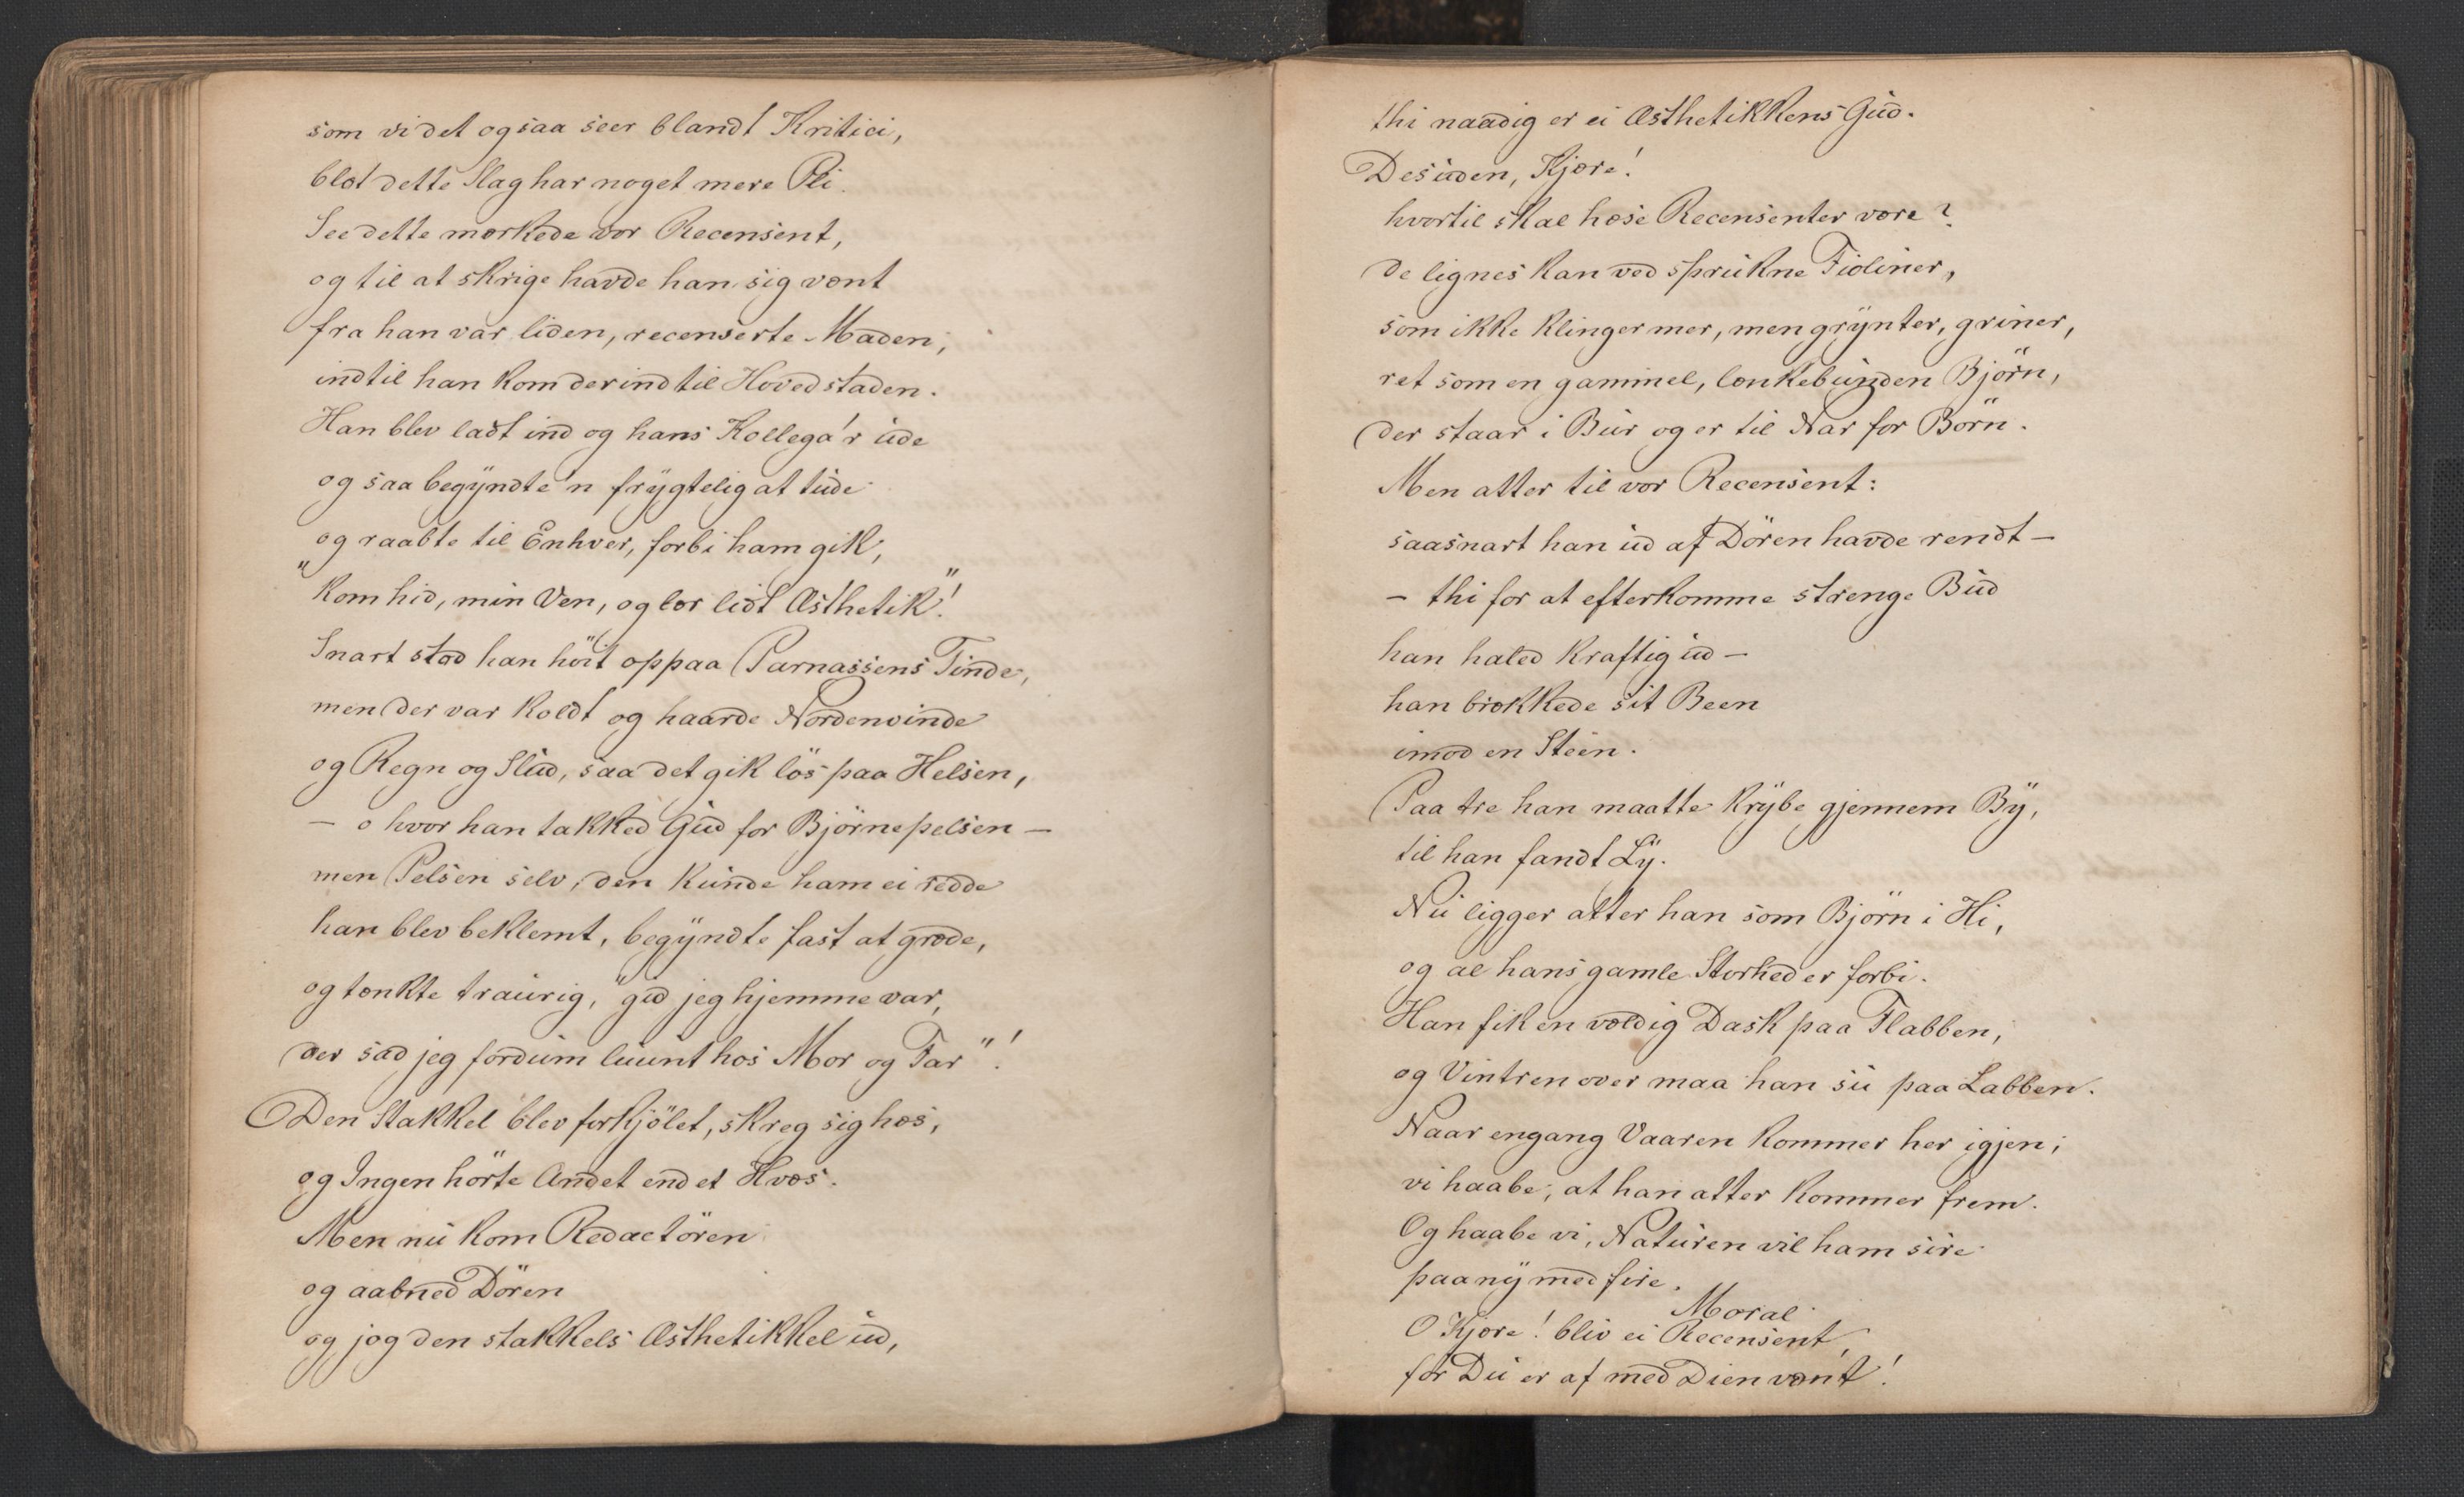 som vi det ogsaa seer blandt Kritici,
blot dette Slag har noget mere Pli.
See dette mærkede vor Recensent,
og til at skrige havde han sig vænt
fra han var liden, recenserte Maden,
indtil han kom der ind til Hovedstaden.
Han blev ladt ind og hans Kollega'r ude
og saa begyndte'n frygtelig at tude
og raabte til Enhver, forbi ham gik,
"Kom hid, min Ven, og lær lidt Æsthetik"!
Snart stod han höit oppaa Parnassens Tinde,
men der var koldt og haarde Nordenvinde
og Regn og Slud, saa det gik lös paa Helsen,
— o hvor han takked Gud for Björnepelsen —
men Pelsen selv, den kunde ham ei redde
han blev beklemt, begyndte fast at græde,
og tænkte traurig, "gid jeg hjemme var,
der sad jeg fordum luunt hos Mor og Far"!
Den Stakkel blev forkjölet, skreg sig hæs,
og Ingen hörte Andet end et Hvæs.
Men nu kom Redactören
og aabned Dören
og jog den stakkels Æsthetikkel ud,
thi naadig er ei Æsthetikkens Gud.
Desuden, Kjære!
hvortil skal hæse Recensenter være?
de lignes kan ved sprukne Fioliner,
som ikke klinger mer, men grynter, griner,
ret som en gammel, lænkebunden Björn,
der staar i Buur og er til Nar for Börn.
Men atter til vor Recensent:
saasnart han ud af Dören havde rendt —
— thi for at efterkomme strenge Bud
han haled kraftig ud —
han brækkede sit Been
imod en Steen.
Paa tre han maatte krybe gjennem By,
til han fandt Ly.
Nu ligger atter han som Björn i Hi,
og al hans gamle Storhed er forbi.
Han fik en vældig Dask paa Flabben,
og Vintren over maa han su paa Labben.
Naar engang Vaaren kommer her igjen,
vi haabe, at han atter kommer frem.
Og haabe vi, Naturen vil ham sire
paany med fire.
Moral
O Kjære! bliv ei Recensent,
før Du er af med Dien vænt!